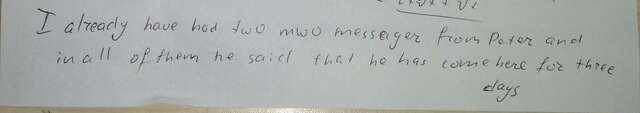 I already have had two mwo messager from Peter and
in all of them he said that he has come here for three
days